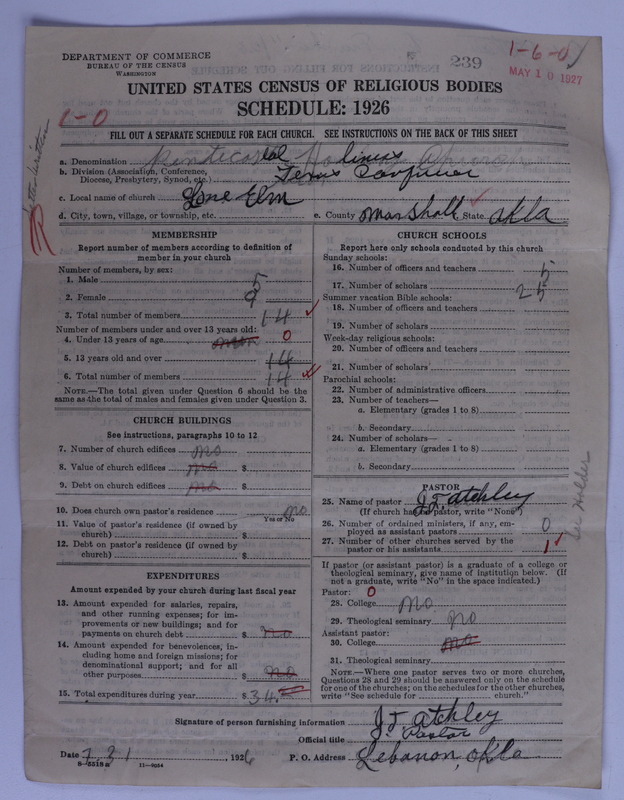 DEPARTMENT OF COMMERCE
BUREAU OF THE CENSUS
WASHINGTON
239
1-6-0
MAY 10 1927
UNITED STATES CENSUS OF RELIGIOUS BODIES
SCHEDULE: 1926
1-0
FILL OUT A SEPARATE SCHEDULE FOR EACH CHURCH. SEE INSTRUCTIONS ON THE BACK OF THIS SHEET
a. Denomination Pentecostal Holiness Church
b. Division (Association, Conference, Diocese, Presbytery, Synod, etc.) Texas
c. Local name of church Lone Elm
d. City, town, village, or township, etc. e. County Marshall State Okla
MEMBERSHIP
Report number of members according to definition of member in your church
Number of members, by sex:
1. Male 5
2. Female 9
3. Total number of members 14
Number of members under and over 13 years old:
4. Under 13 years of age 0
5. 13 years old and over 14
6. Total number of members 14
NOTE.—The total given under Question 6 should be the same as the total of males and females given under Question 3.
CHURCH BUILDINGS
See instructions, paragraphs 10 to 12
7. Number of church edifices no
8. Value of church edifices no $
9. Debt on church edifices no $
10. Does church own pastor's residence no
Yes or No
11. Value of pastor's residence (if owned by church) $
12. Debt on pastor's residence (if owned by church) $
EXPENDITURES
Amount expended by your church during last fiscal year
13. Amount expended for salaries, repairs, and other running expenses; for improvements or new buildings; and for payments on church debt $ no
14. Amount expended for benevolences, including home and foreign missions; for denominational support; and for all other purposes $ no
15. Total expenditures during year $ 34.
CHURCH SCHOOLS
Report here only schools conducted by this church
Sunday schools:
16. Number of officers and teachers 5
17. Number of scholars 25
Summer vacation Bible schools:
18. Number of officers and teachers
19. Number of scholars
Week-day religious schools:
20. Number of officers and teachers
21. Number of scholars
Parochial schools:
22. Number of administrative officers
23. Number of teachers—
a. Elementary (grades 1 to 8)
b. Secondary
24. Number of scholars—
a. Elementary (grades 1 to 8)
b. Secondary
PASTOR
25. Name of pastor J T Atchley
(If church has no pastor, write "None")
26. Number of ordained ministers, if any, employed as assistant pastors 0
27. Number of other churches served by the pastor or his assistants 1
If pastor (or assistant pastor) is a graduate of a college or theological seminary, give name of institution below. (If not a graduate, write "No" in the space indicated.)
Pastor: 0
28. College no
29. Theological seminary no
Assistant pastor:
30. College no
31. Theological seminary
NOTE.—Where one pastor serves two or more churches, Questions 28 and 29 should be answered only on the schedule for one of the churches; on the schedules for the other churches, write "See schedule for church."
Signature of person furnishing information J T Atchley
Official title Pastor
Date 7.31, 1926 P. O. Address Lebanon, Okla
8-5518a 11-9054